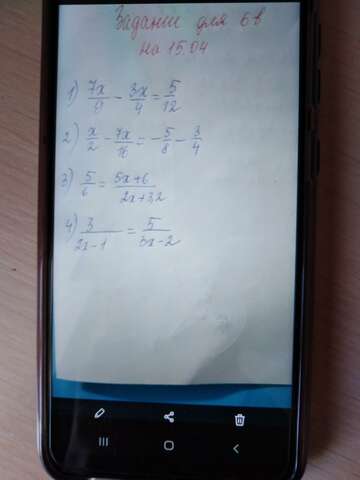 Задания для 6в
на 15.04
1) 7x/9 - 3x/4 = 5/12
2) x/2 - 7x/16 = - 5/8 - 3/4
3) 5/6 = 5x+6/2x+3,2
4) 3/2x-1 = 5/3x-2